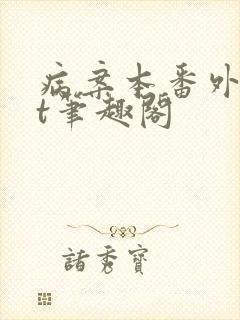 病案本番外
t笔趣阁
諸秀寶